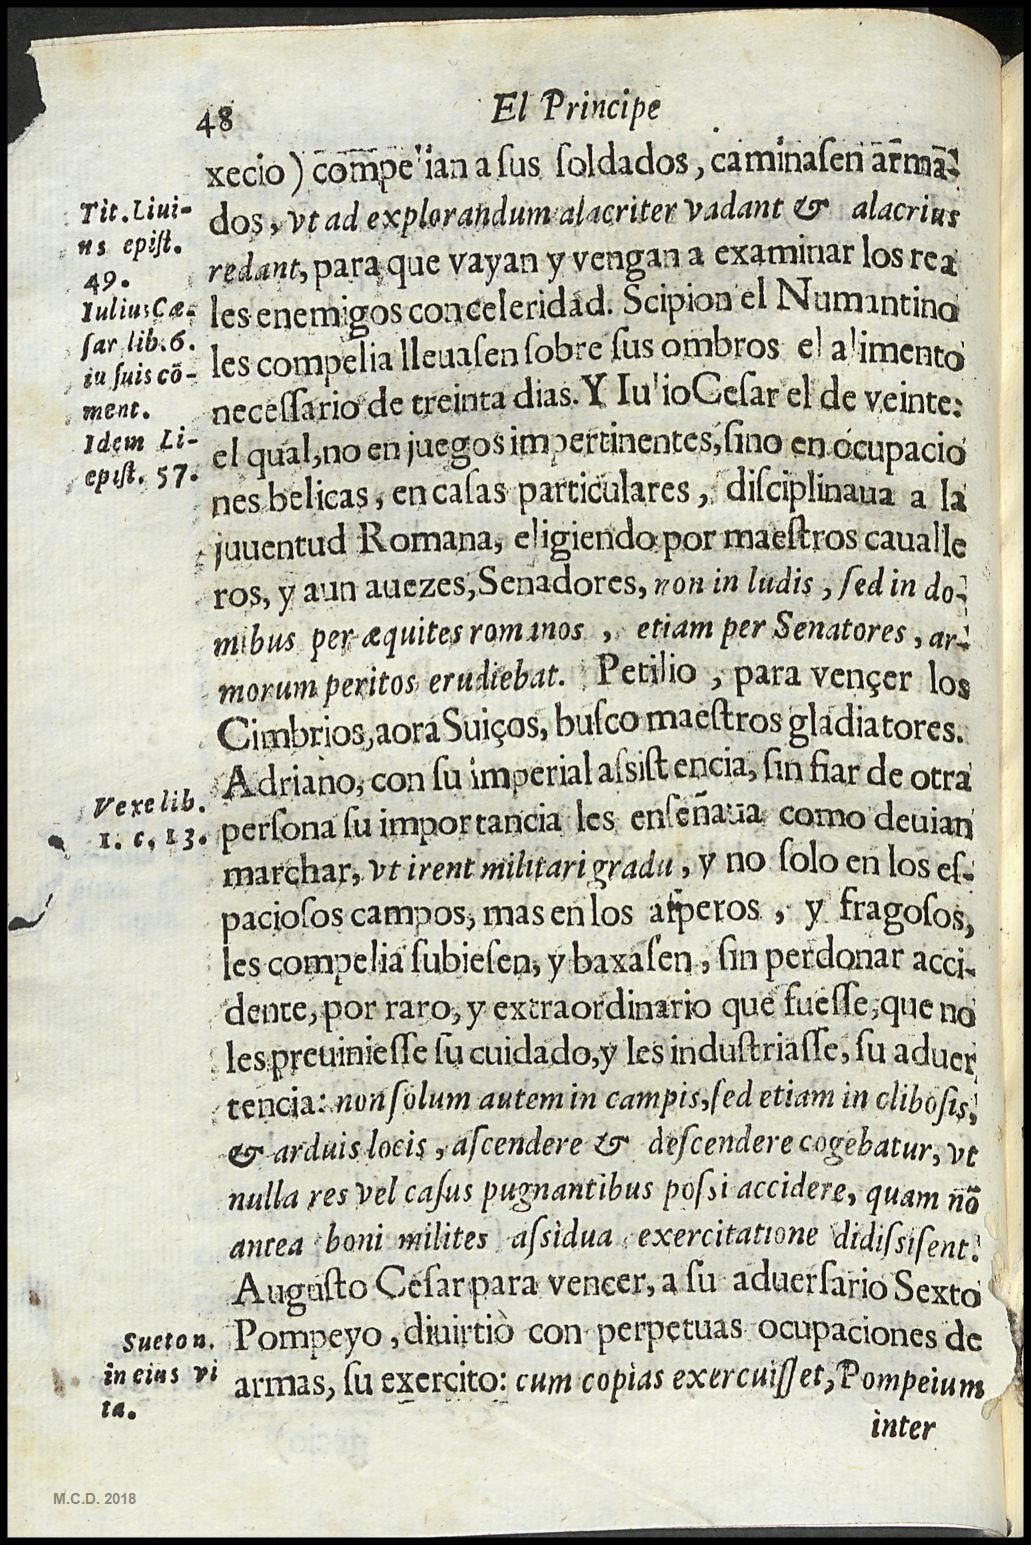 48
El Principe
xecio) compelian a sus soldados, caminasen arma-
dos, vt ad explorandum alacriter vadant & alacrius
redant, para que vayan y vengan a examinar los rea
les enemigos con celeridad. Scipion el Numantino
les compelia lleuasen sobre sus ombros el alimento
necessario de treinta dias. Y Iulio Cesar el de veinte:
el qual, no en juegos impertinentes, sino en ocupacio
nes belicas, en casas particulares, disciplinaua a la
juuentud Romana, eligiendo por maestros caualle
ros, y aun auezes, Senadores, non in ludis, sed in do-
mibus per æquites romanos, etiam per Senatores, ar-
morum peritos erudiebat. Petilio, para vençer los
Cimbrios, aora Suiços, busco maestros gladiatores.
Adriano, con su imperial assistencia, sin fiar de otra
persona su importancia les enseñaua como deuian
marchar, vt irent militari gradu, y no solo en los es-
paciosos campos, mas en los asperos, y fragosos,
les compelia subiesen, y baxasen, sin perdonar acci-
dente, por raro, y extraordinario que fuesse, que no
les preuiniesse su cuidado, y les industriasse, su aduer
tencia: non solum autem in campis, sed etiam in clibosis,
& arduis locis, ascendere & descendere cogebatur, vt
nulla res vel casus pugnantibus possi accidere, quam nõ
antea boni milites assidua exercitatione didissisent.
Augusto Cesar para vencer, a su aduersario Sexto
Pompeyo, diuirtiò con perpetuas ocupaciones de
armas, su exercito: cum copias exercuisset, Pompeium
inter
Tit. Liui-
us epist.
49.
Iulius Cæ-
sar lib. 6.
in suis cõ-
ment.
Idem Li-
epist. 57.
Vexe lib.
1. c. 13.
Sueton.
in eius vi
ta.
M.C.D. 2018